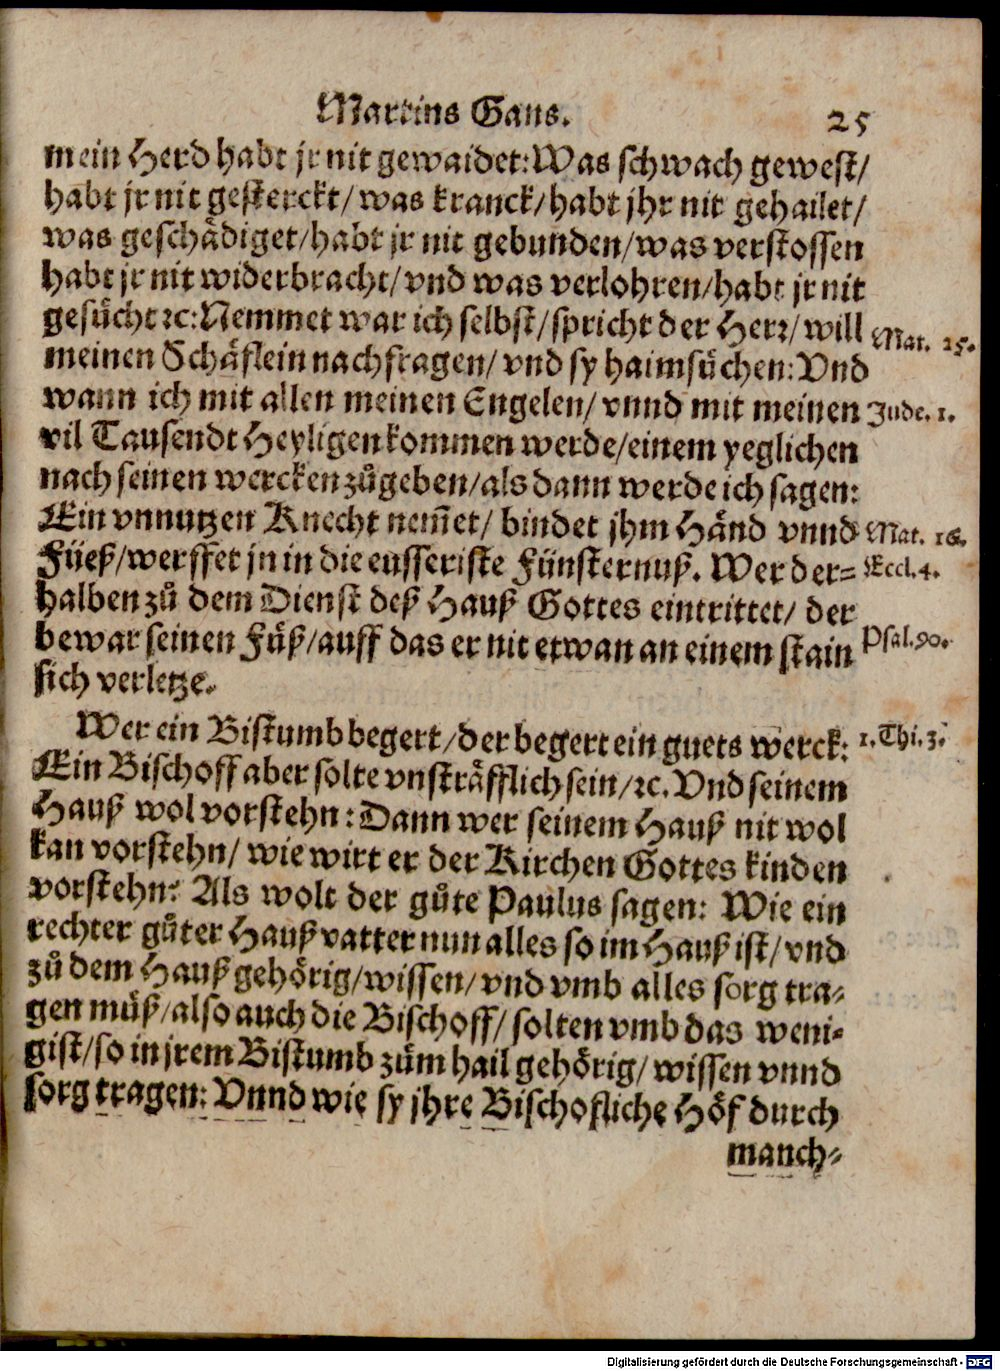 Martins Gans. 25
mein Herd habt jr nit gewaidet: Was schwach gewest/
habt jr nit gesterckt/ was kranck/ habt jhr nit gehailet/
was geschädiget/ habt jr nit gebunden/ was verstossen
habt jr nit widerbracht/ vnd was verlohren/ habt jr nit
gesůcht ꝛc: Nemmet war ich selbst/ spricht der Herꝛ/ will Mat. 25.
meinen Schäflein nachfragen/ vnd sy haimsůchen: Vnd
wann ich mit allen meinen Engelen/ vnnd mit meinen Jude. 1.
vil Tausendt Heyligen kommen werde/ einem yeglichen
nach seinen wercken zůgeben/ als dann werde ich sagen:
Ein vnnutzen Knecht nem̃et/ bindet jhm Händ vnnd Mat. 16.
Füeß/ werffet jn in die eusseriste Fünsternuß. Wer der= Eccl. 4.
halben zů dem Dienst deß Hauß Gottes eintrittet/ der
bewar seinen Fůß/ auff das er nit etwan an einem stain Psal. 90.
sich verletze.
Wer ein Bistumb begert/ der begert ein guets werck: 1. Thi. 3.
Ein Bischoff aber solte vnsträfflich sein/ ꝛc. Vnd seinem
Hauß wol vorstehn: Dann wer seinem Hauß nit wol
kan vorstehn/ wie wirt er der Kirchen Gottes kinden
vorstehn? Als wolt der gůte Paulus sagen: Wie ein
rechter gůter Haußvatter nun alles so im Hauß ist/ vnd
zů dem Hauß gehörig/ wissen/ vnd vmb alles sorg tra=
gen můß/ also auch die Bischoff/ solten vmb das weni=
gist/ so in jrem Bistumb zům hail gehörig/ wissen vnnd
sorg tragen: Vnnd wie sy jhre Bischofliche Höf durch
manch=
Digitalisierung gefördert durch die Deutsche Forschungsgemeinschaft - DFG